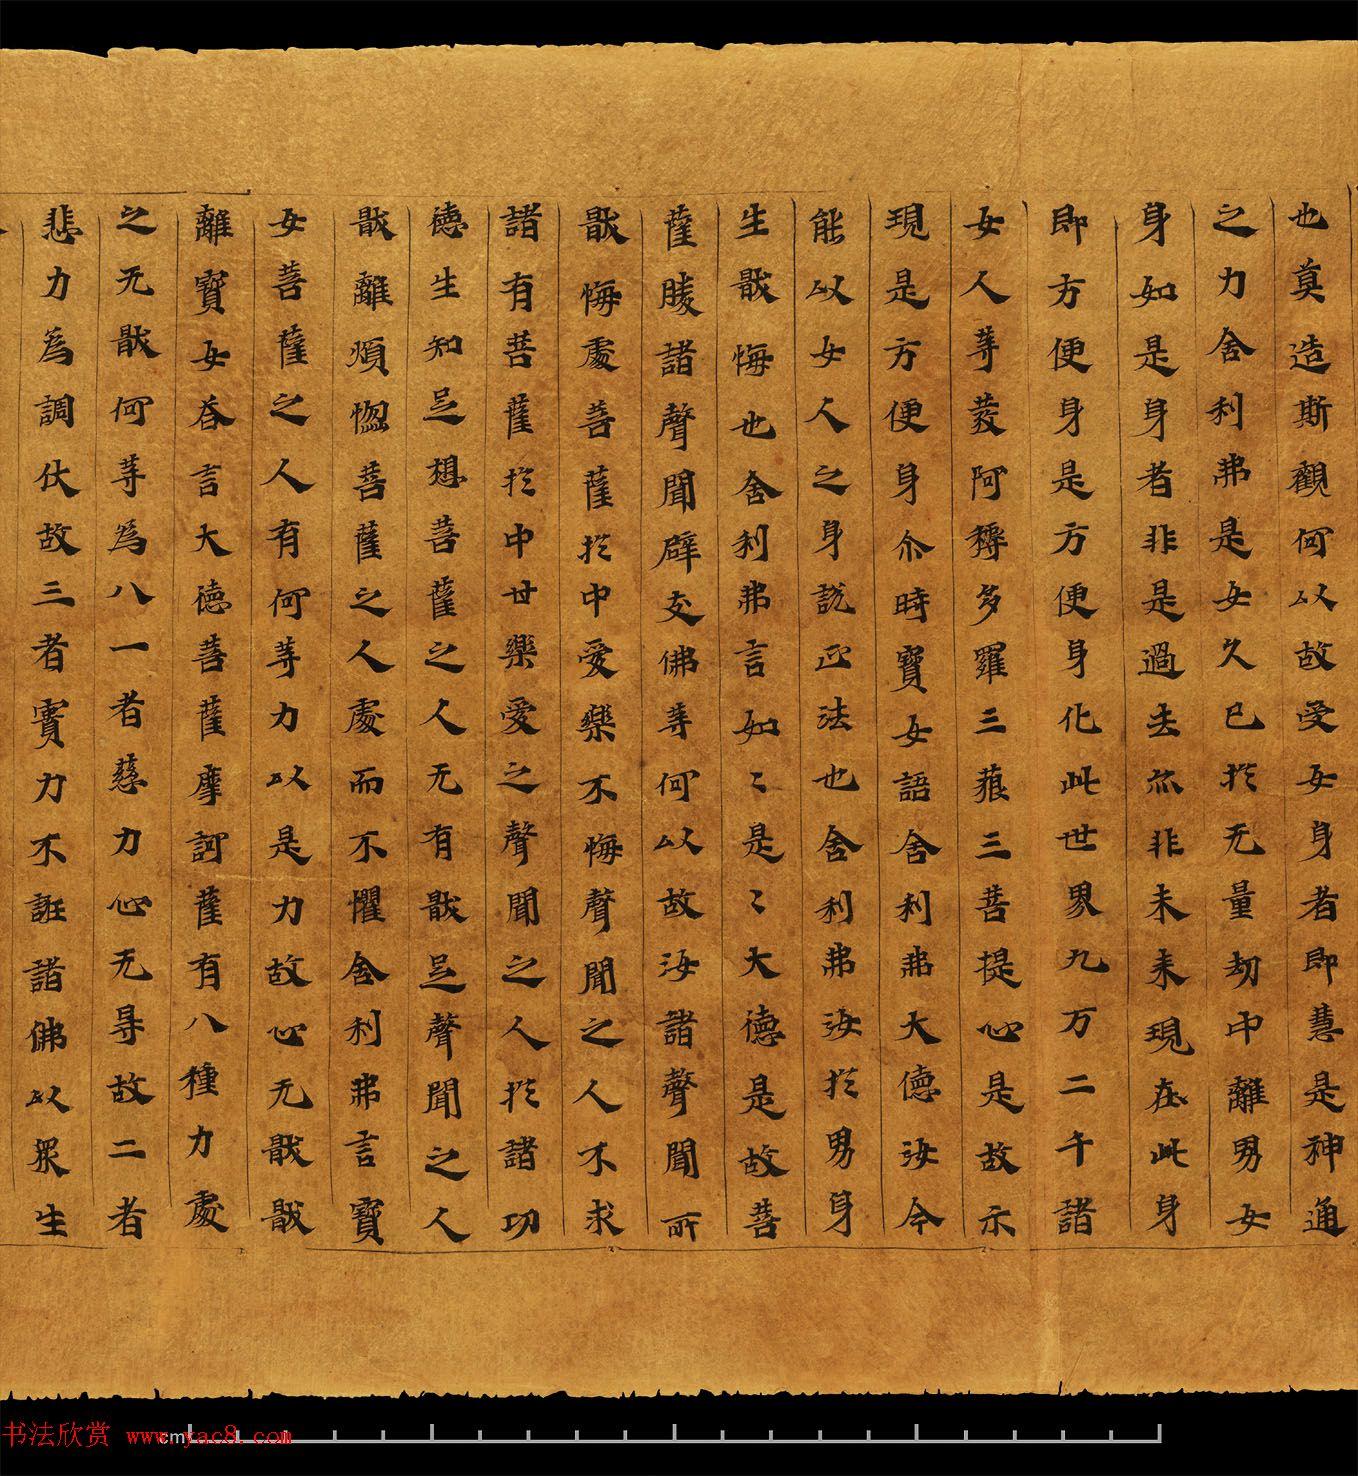 也莫造斯觀何以故受女身者即慧是神通
之力舍利弗是女久已扵无量劫中離男女
身如是身者非是過去亦非未来現在此身
即方便身是方便身化此世界九万二千諸
女人等發阿耨多羅三藐三菩提心是故示
現是方便身尒時寶女語舍利弗大德汝今
能以女人之身說正法也舍利弗汝扵男身
生猒悔也舍利弗言如〻是〻大德是故菩
薩勝諸聲聞辟支佛等何以故汝諸聲聞所
猒悔處菩薩扵中愛樂不悔聲聞之人不求
諸有菩薩扵中世樂愛之聲聞之人扵諸功
德生知足想菩薩之人无有猒足聲聞之人
猒離煩惚菩薩之人處而不懼舍利弗言寶
女菩薩之人有何等力以是力故心无猒猒
離寶女荅言大德菩薩摩訶薩有八種力處
之无猒何等為八一者慈力心无㝵故二者
悲力為調伏故三者實力不誑諸佛以眾生
书法欣赏 www.yac8.com
cm